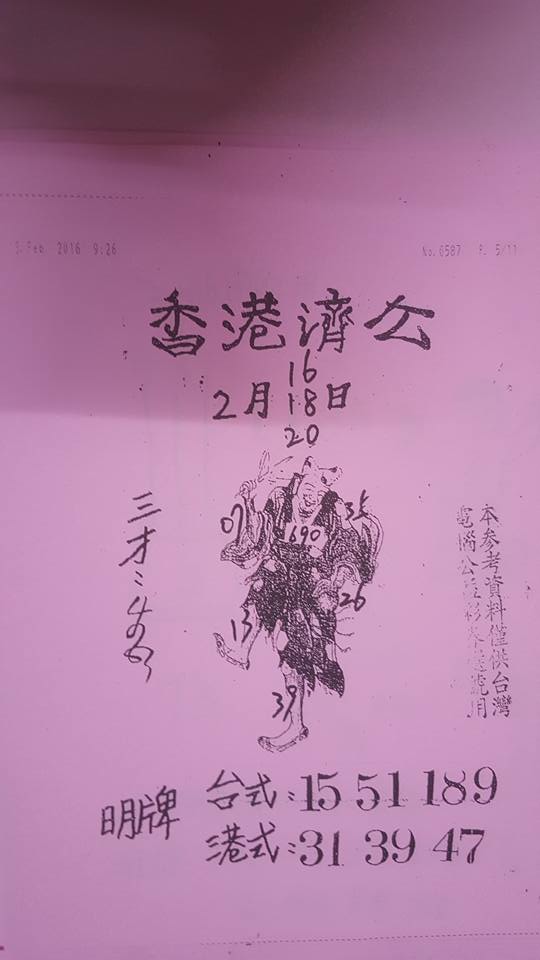 5 Feb. 2016 9:26
No. 6587 P. 5/11
香港濟公
16
2月18日
20
07
35
690
26
13
39
三才:
本參考資料僅供台灣
電腦公益彩券選號用
明牌
台式:15 51 189
港式:31 39 47